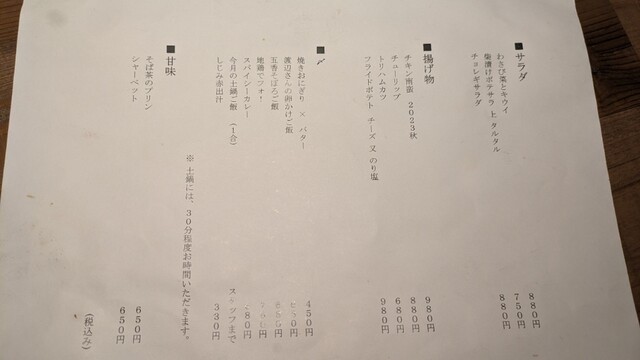 ■サラダ
わさび菜とキウイ 880円
柴漬けポテサラ 上 タルタル 750円
チョレギサラダ 880円
■揚げ物
チキン南蛮 2023秋 980円
チューリップ 880円
トリハムカツ 680円
フライドポテト チーズ 又 のり塩 980円
■
焼きおにぎり × バター 450円
渡辺さんの卵かけご飯
五香そぼろご飯
地鶏でフォ！
スパイシーカレー
今月の土鍋ご飯 (1合) スタッフまで
しじみ赤出汁 330円
※ 土鍋には、30分程度お時間いただきます。
■甘味
そば茶のプリン 650円
シャーベット 650円
(税込み)